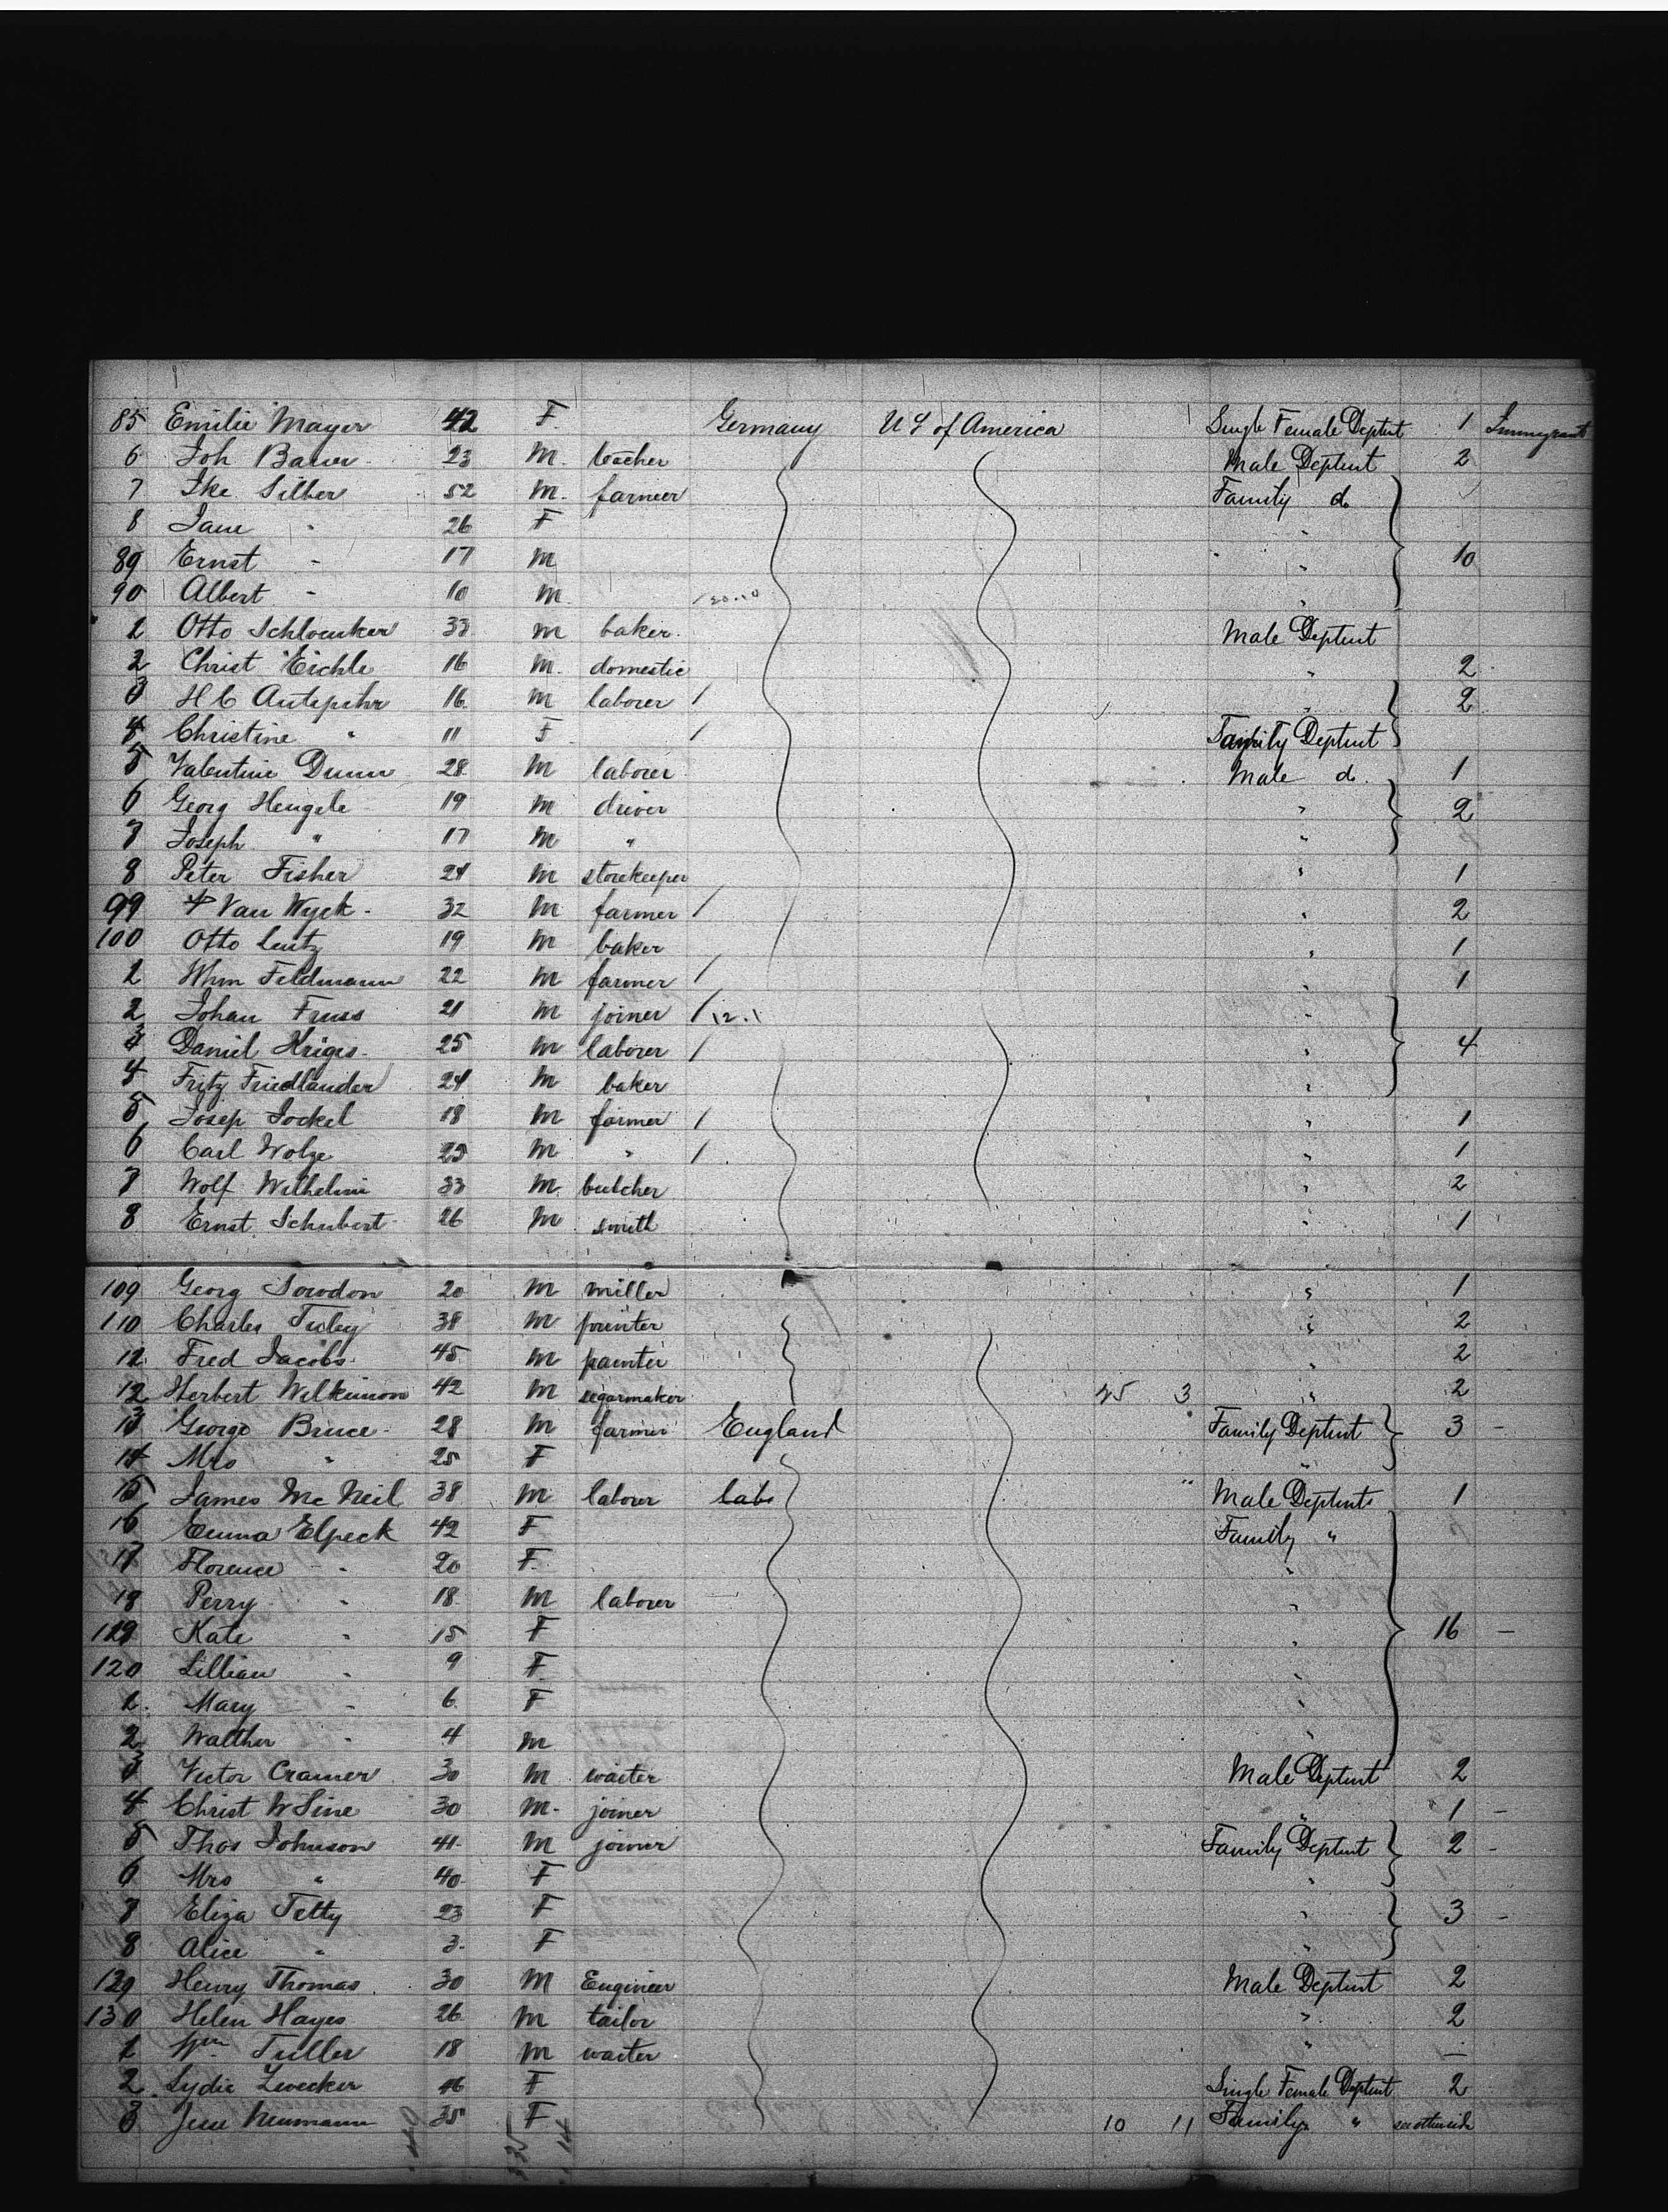 85 Emilie Mayer 42 F. Germany U S of America Single Female Deptmt 1 Immigrants
6 Joh Bauer 23 M. teacher Male Deptmt 2
7 Ike Silber 52 M. farmer Family do
8 Jane " 26 F "
89 Ernst " 17 M " 10
90 Albert " 10 M. "
1 Otto Schloenker 33 M baker. Male Deptmt
2 Christ Eichle 16 M. domestic " 2
3 H C 16. M laborer / " 2
4 Christine " 11 F / Family Deptmt
5 Valentine Dunn 28. M laborer Male do. 1
6 Georg Hengele 19 M driver " 2
7 Joseph " 17 M " "
8 Peter Fisher 24 M storekeeper " 1
99 Van Wyck 32 M farmer / " 2
100 Otto Lentz 19 M baker " 1
1 Whm Feldmann 22 M farmer / " 1
2 Johan Fruss 21 M joiner / 12.1 "
3 Daniel Kriges 25 M laborer / " 4
4 Fritz Friedlander 24 M baker "
5 Josep Jockel 18 M farmer / " 1
6 Carl Wolze 25 M " / " 1
7 Wolf Wilhelmi 33 M. butcher " 2
8 Ernst Schubert 26 M smith " 1
109 Georg Sowdon 20 M miller " 1
110 Charles Tuley 38 M printer " 2
11 Fred Jacobs 45 M painter " 2
12 Herbert Wilkinson 42 M segarmaker 25 3 " 2
13 George Bruce 28 M farmer England Family Deptmt 3 -
14 Mrs " 25 F "
15 James Mc Neil 38 M laborer labo " Male Deptmts 1
16 Emma Elpeck 42 F Family "
17 Florence " 20 F. "
18 Perry " 18. M laborer "
119 Kate " 15 F " 16 -
120 Lillian " 9 F "
1. Mary " 6. F "
2 Walther " 4 M "
3 Victor Cramer 30 M waiter Male Deptmt 2
4 Christ W Sine 30 M. joiner " 1 -
5 Thos Johnson 41. M joiner Family Deptmt 2 -
6 Mrs " 40. F "
7 Eliza Tetty 23 F " 3 -
8 Alice " 3. F "
129 Henry Thomas 30 M Engineer Male Deptmt 2
130 Helen Hayes 26. M tailor " 2
1 Wm Fuller 18 M waiter " -
2 Lydie Zwecker 46 F Single Female Deptmt 2
3 Jene Neumann 35 F 10 11 Family " see otherside